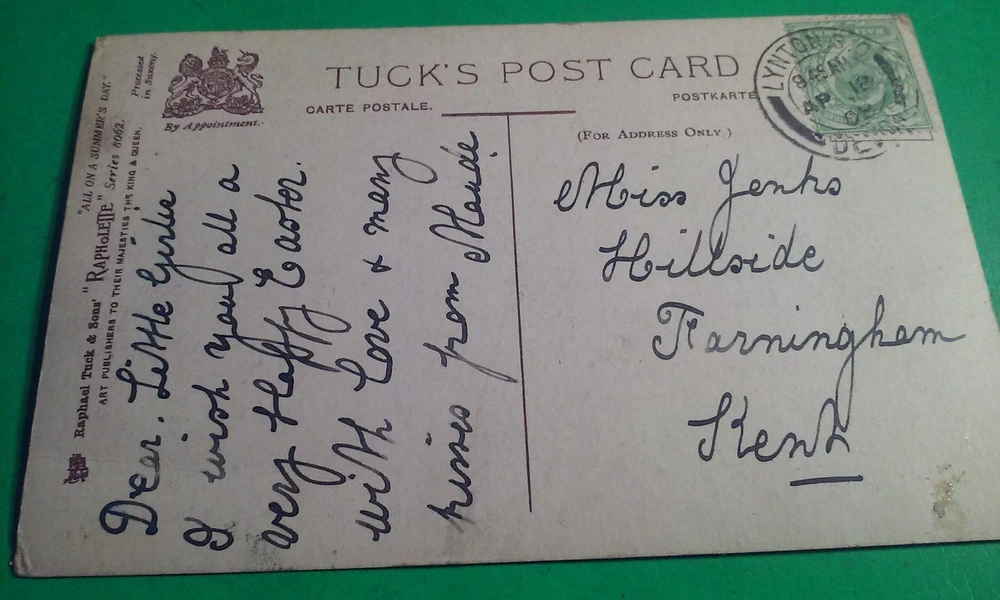 TUCK'S POST CARD
CARTE POSTALE.
POSTKARTE
By Appointment.
(FOR ADDRESS ONLY)
Raphael Tuck & Sons' "RAPHOLETTE" Series 8062.
"ALL ON A SUMMER'S DAY."
ART PUBLISHERS TO THEIR MAJESTIES THE KING & QUEEN.
Processed
in Saxony.
Dear. Little Girlie
I wish you all a
very Happy Easter.
with Love & many
kisses from Maude
Miss Jenks
Hillside
Farningham
Kent
LYNTON
9.45 AM
AP 12